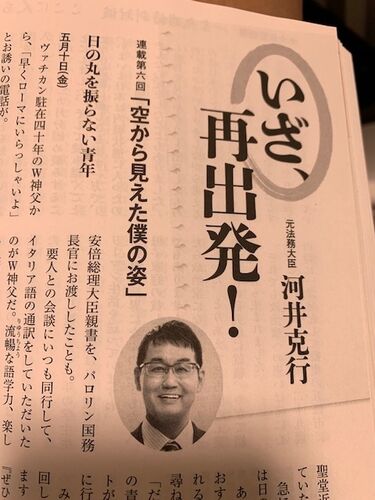 いざ、
再出発!
元法務大臣
河井克行
連載第六回「空から見えた僕の姿」
日の丸を振らない青年
五月十日(金)
ヴァチカン駐在四十年のW神父か
ら、「早くローマにいらっしゃいよ」
とお誘いの電話が。
安倍総理大臣親書を、パロリン国務
長官にお渡ししたことも。
要人との会談にいつも同行して、
イタリア語の通訳をしていただいた
のがW神父だ。流暢な語学力、楽し
りゅうちょう
聖堂近
ていた
急
は日
あ
おす
れる
尋ね
「だ
の青
トが
に行
み
回し
ます
『ぜひ